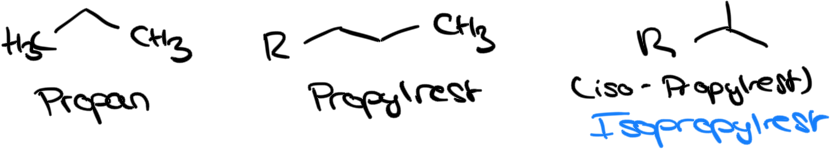 H₃C CH₃ R CH₃ R
Propan Propylrest (iso-Propylrest)
Isopropylrest